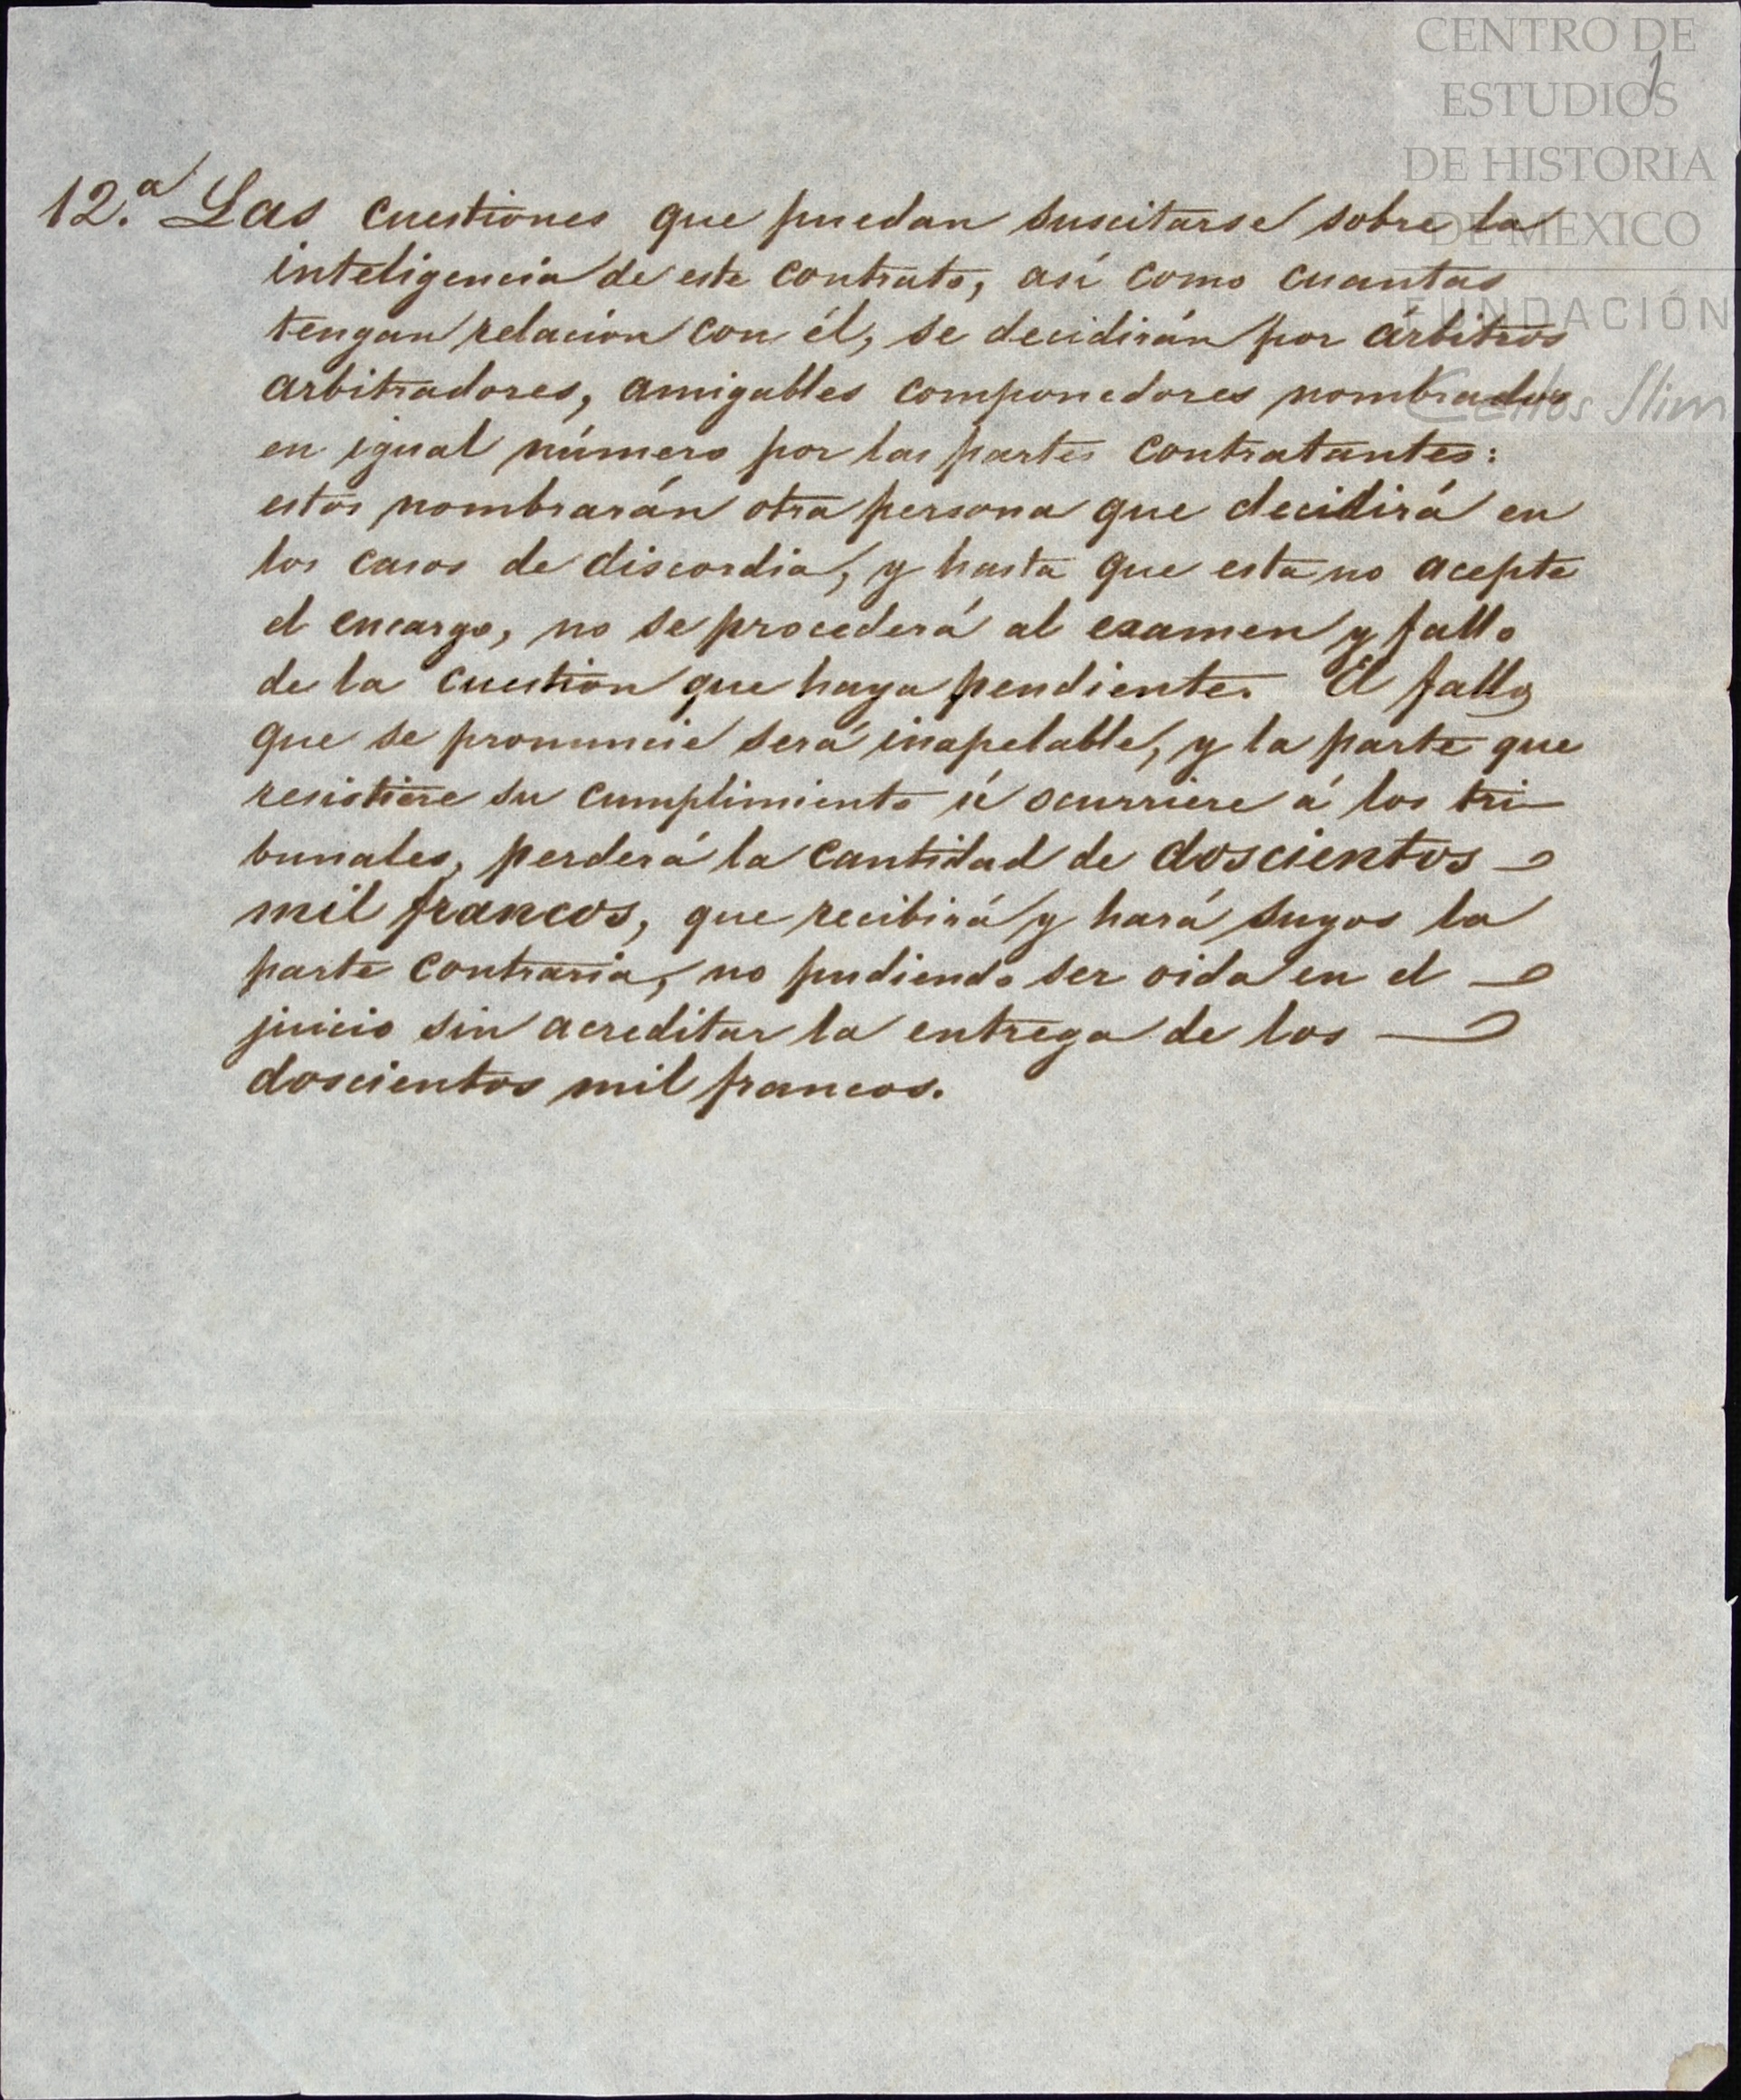 CENTRO DE
ESTUDIOS
DE HISTORIA
DE MEXICO
FUNDACIÓN
Carlos Slim
1
12.ª Las cuestiones que puedan suscitarse sobre la
inteligencia de este contrato, así como cuantas
tengan relacion con él, se decidirán por árbitros
arbitradores, amigables componedores nombrados
en igual número por las partes contratantes:
estos nombrarán otra persona que decidirá en
los casos de discordia, y hasta que esta no acepte
el encargo, no se procederá al examen y fallo
de la cuestion que haya pendiente. El fallo
que se pronuncie será inapelable, y la parte que
resistiere su cumplimiento ú ocurriere á los tri-
bunales, perderá la cantidad de doscientos
mil francos, que recibirá y hará suyos la
parte contraria, no pudiendo ser oida en el
juicio sin acreditar la entrega de los
doscientos mil francos.